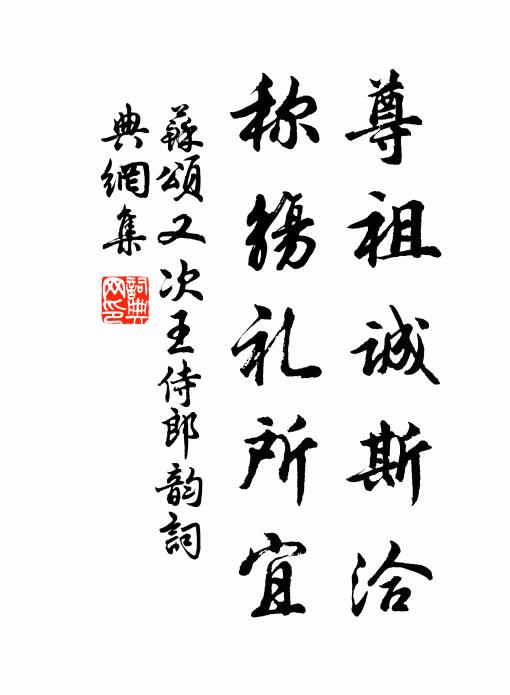 尊祖诚斯洽
称觞礼所宜
蘇頌又次王侍郎韵詞
典網集
詞典网印